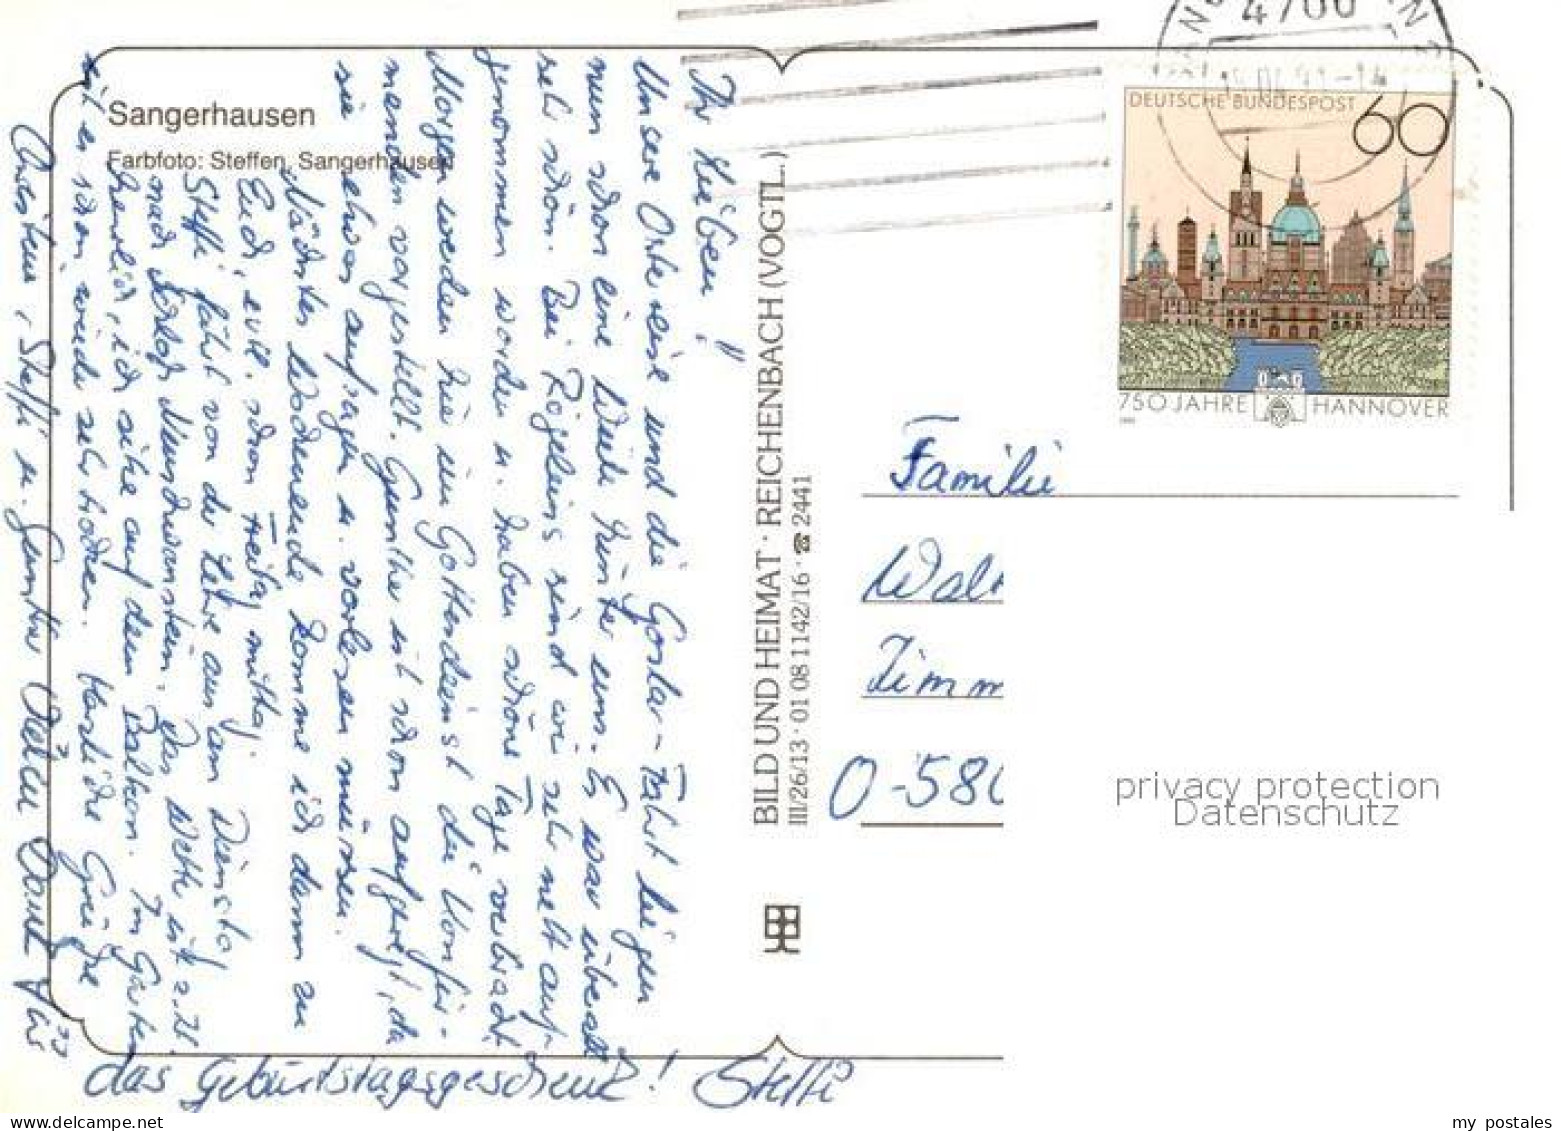 Sangerhausen
Farbfoto: Steffen, Sangerhausen
Ihr Lieben!
Unsere Osterreise und die Goslar-Fahrt liegen
nun schon eine Weile hinter uns. Es war überall
sehr schön. Bei Rögeleins sind wir sehr nett auf-
genommen worden u. haben schöne Tage verbracht.
Morgen werden hier im Gottesdienst die Konfir-
manden vorgestellt. Gunther ist schon aufgeregt, da
sie etwas aufsagen u. vorlesen müssen.
Nächstes Wochenende komme ich dann zu
Euch, evtl. schon Freitag mittag.
Steffi fährt von der Lehre aus am Dienstag
nach Schloß Neuschwanstein. Das Wetter ist z. Zt.
herrlich, ich sitze auf dem Balkon. Im Garten
ist es schon wieder sehr trocken. Herzliche Grüße
Steffi u. Gunther Vielen Dank für
das Geburtstagsgeschenk! Steffi
BILD UND HEIMAT · REICHENBACH (VOGTL.)
III/26/13 · 01 08 1142/16 · ☎ 2441
4700
DEUTSCHE BUNDESPOST
60
750 JAHRE HANNOVER
Familie
Walt
Zimm
O-580
privacy protection
Datenschutz
my postales